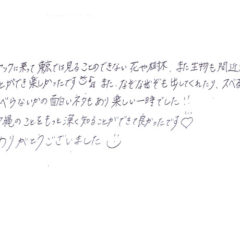 ヤックに乗って東京では見ることのできない花や植林、また生物も間近
とができ楽しかったです また、なぞなぞも出してくれたり、スベる
べらないかの面白いネタもあり楽しい一時でした!!
縄のことをもっと深く知ることができて良かったです♡
ありがとうございました